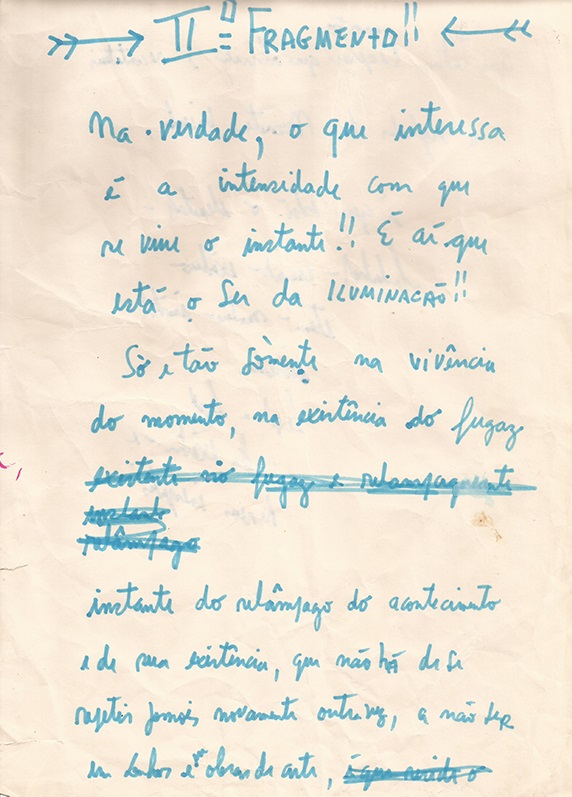 IIº FRAGMENTO!!
Na verdade, o que interessa
é a intensidade com que
se vive o instante!! E aí que
está o Ser da ILUMINACÃO!!
Só e tão sòmente na vivência
do momento, na existência do fugaz
existente no fugaz e relampagueante
instante
relâmpago
instante do relâmpago do acontecimento
e de sua existência, que não há de se
repetir jamais novamente outra vez, a não SER
em sonhos e obras de arte,